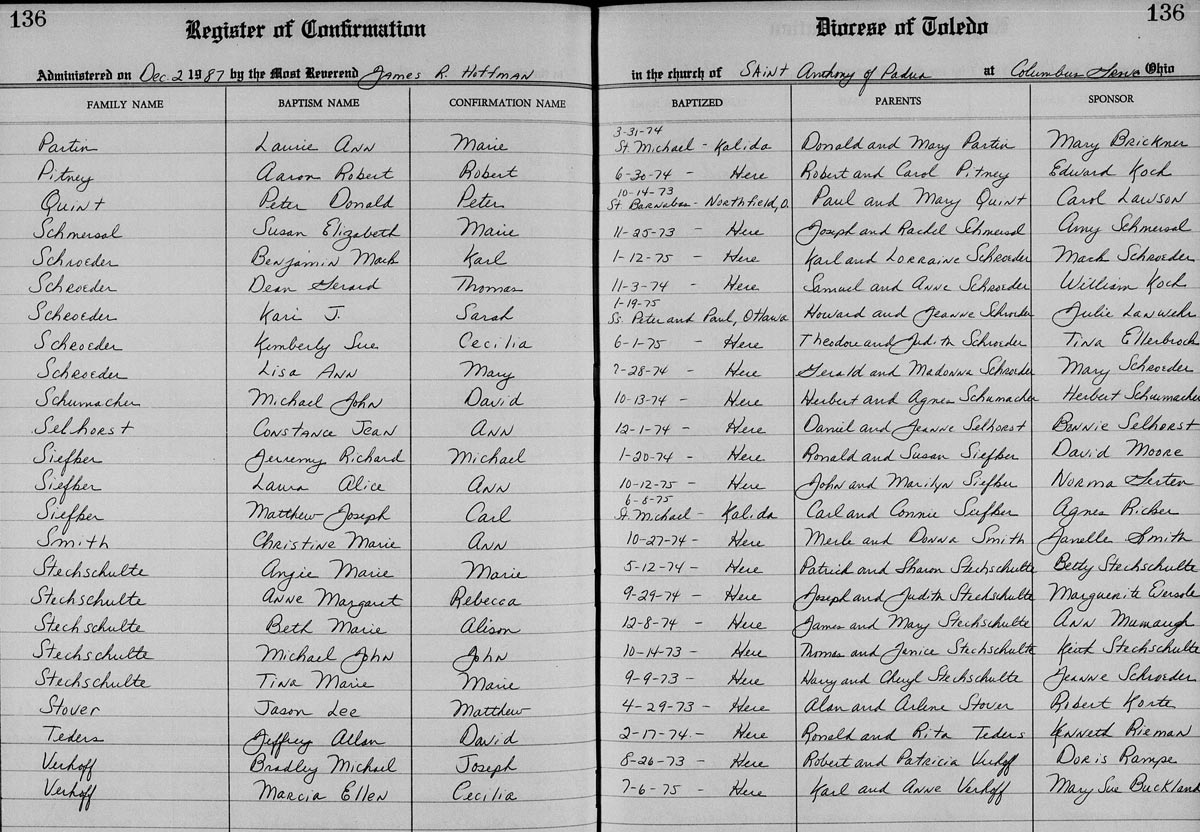 136 136
Register of Confirmation Diocese of Toledo
Administered on Dec. 2 1987 by the Most Reverend James R. Hoffman in the church of SAINT Anthony of Padua at Columbus Grove Ohio
FAMILY NAME BAPTISM NAME CONFIRMATION NAME BAPTIZED PARENTS SPONSOR
3-31-74
Partin Laurie Ann Marie St. Michael - Kalida Donald and Mary Partin Mary Brickner
Pitney Aaron Robert Robert 6-30-74 - Here Robert and Carol Pitney Edward Koch
10-14-73
Quint Peter Donald Peter St Barnabas - Northfield, O. Paul and Mary Quint Carol Lawson
Schmersal Susan Elizabeth Marie 11-25-73 - Here Joseph and Rachel Schmersal Amy Schmersal
Schroeder Benjamin Mark Karl 1-12-75 - Here Karl and Lorraine Schroeder Mark Schroeder
Schroeder Dean Gerard Thomas 11-3-74 - Here Samuel and Anne Schroeder William Koch
1-19-75
Schroeder Kari J. Sarah Ss. Peter and Paul, Ottawa Howard and Jeanne Schroeder Julie Lanwehr
Schroeder Kimberly Sue Cecilia 6-1-75 - Here Theodore and Judith Schroeder Tina Ellerbrock
Schroeder Lisa Ann Mary 7-28-74 - Here Gerald and Madonna Schroeder Mary Schroeder
Schumacher Michael John David 10-13-74 - Here Herbert and Agnes Schumacher Herbert Schumacher
Selhorst Constance Jean Ann 12-1-74 - Here Daniel and Jeanne Selhorst Bonnie Selhorst
Siefker Jerremy Richard Michael 1-20-74 - Here Ronald and Susan Siefker David Moore
Siefker Laura Alice Ann 10-12-75 - Here John and Marilyn Siefker Norma Gerten
6-8-75
Siefker Matthew Joseph Carl St. Michael - Kalida Carl and Connie Siefker Agnes Ricker
Smith Christine Marie Ann 10-27-74 - Here Merle and Donna Smith Janelle Smith
Stechschulte Angie Marie Marie 5-12-74 - Here Patrick and Sharon Stechschulte Betty Stechschulte
Stechschulte Anne Margaret Rebecca 9-29-74 - Here Joseph and Judith Stechschulte Marguerite Eversole
Stechschulte Beth Marie Alison 12-8-74 - Here James and Mary Stechschulte Ann Mumaugh
Stechschulte Michael John John 10-14-73 - Here Thomas and Jenice Stechschulte Keith Stechschulte
Stechschulte Tina Marie Marie 9-9-73 - Here Harry and Cheryl Stechschulte Jeanne Schroeder
Stover Jason Lee Matthew 4-29-73 - Here Alan and Arlene Stover Robert Korte
Teders Jeffrey Allan David 2-17-74 - Here Ronald and Rita Teders Kenneth Rieman
Verhoff Bradley Michael Joseph 8-26-73 - Here Robert and Patricia Verhoff Doris Rampe
Verhoff Marcia Ellen Cecilia 7-6-75 - Here Karl and Anne Verhoff Mary Sue Buckland